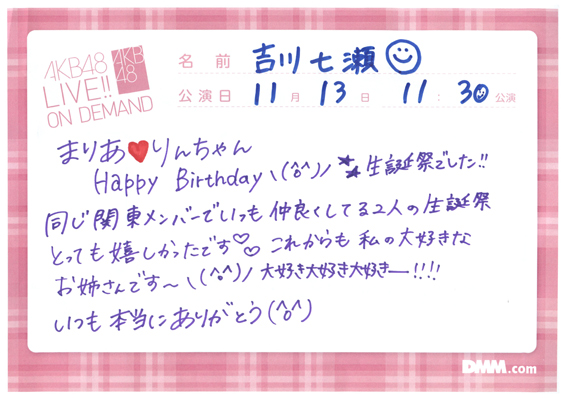 AKB48
LIVE!!
ON DEMAND
AKB
48
名 前 吉川七瀬
公演日 11月 13日 11:30公演
まりあ♥りんちゃん
Happy Birthday ヽ(^o^)ノ 生誕祭でした!!
同じ関東メンバーでいつも仲良くしてる2人の生誕祭
とっても嬉しかったです♡♡ これからも私の大好きな
お姉さんです〜ヽ(^o^)ノ 大好き大好き大好きー!!!!
いつも本当にありがとう(^o^)
DMM.com